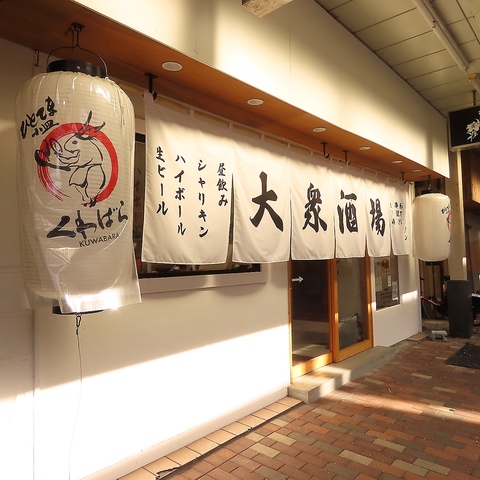 ひとてま
くわばら
KUWABARA
昼飲み
シャリキン
ハイボール
生ビール
大衆酒場